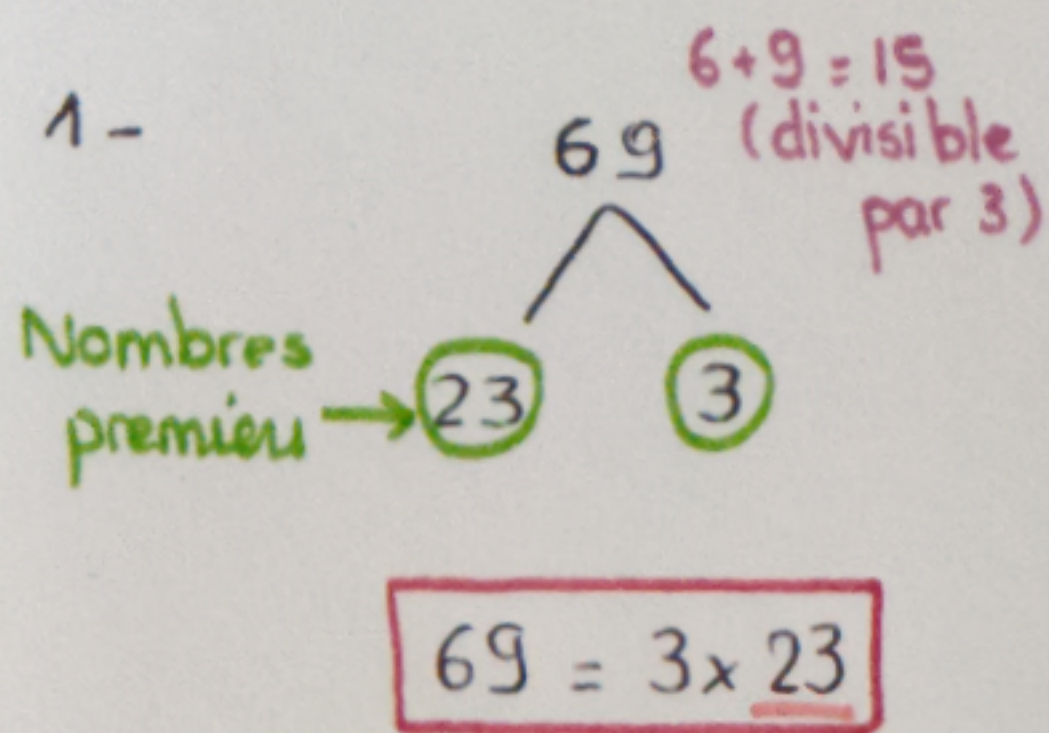 6+9 = 15
1-
69
(divisible
par 3)
Nombres
premiers
23
3
69 = 3x 23